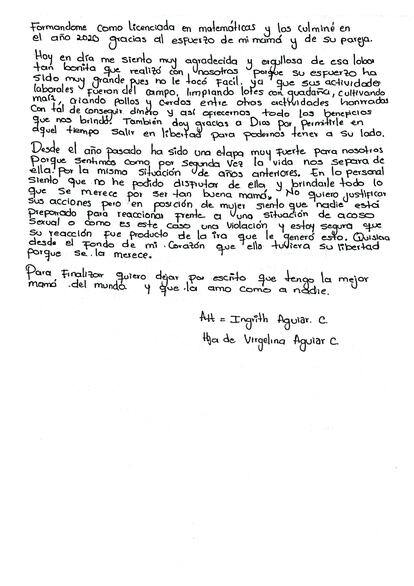 Formandome como licenciada en matemáticas y los culminé en
el año 2020 gracias al esfuerzo de mi mamá y de su pareja.
Hoy en día me siento muy agradecida y orgullosa de esa labor
tan bonita que realizó con nosotros porque su esfuerzo ha
sido muy grande pues no le tocó fácil. ya que sus actividades
laborales fueron del campo, limpiando lotes con guadaña, cultivando
maíz, criando pollos y cerdos entre otras actividades honradas
Con tal de conseguir dinero y así ofrecernos todo los beneficios
que nos brindó. También doy gracias a Dios por permitirle en
aquel tiempo salir en libertad para podernos tener a su lado.
Desde el año pasado ha sido una etapa muy fuerte para nosotros
Porque sentimos como por segunda vez la vida nos separa de
ella. Por la misma situación de años anteriores. En lo personal
siento que no he podido disfrutar de ella y brindarle todo lo
que se merece por ser tan buena mamá. No quiero justificar
sus acciones pero en posición de mujer siento que nadie está
preparado para reaccionar frente a una situación de acoso
sexual o como es este caso una violación y estoy segura que
su reacción fue producto de la ira que le generó esto. Quisiera
desde el fondo de mi corazón que ella tuviera su libertad
porque se la merece.
Para finalizar quiero dejar por escrito que tengo la mejor
mamá del mundo y que la amo como a nadie.
Att = Ingrith Aguiar. C.
Hija de Virgelina Aguiar C.